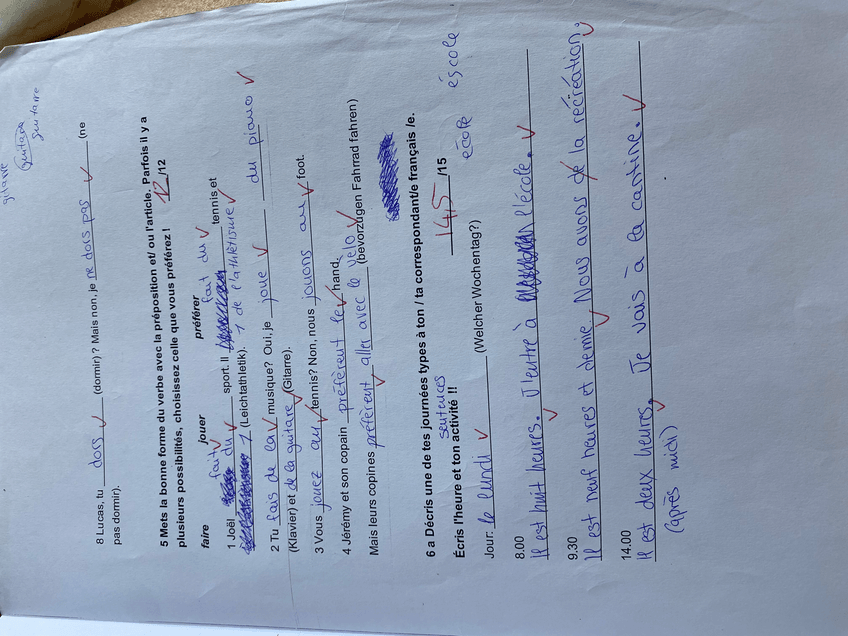 gitarre
guitare
guitarre
8 Lucas, tu dors (dormir) ? Mais non, je ne dors pas (ne
pas dormir).
5 Mets la bonne forme du verbe avec la préposition et/ ou l'article. Parfois il y a
plusieurs possibilités, choisissez celle que vous préférez ! 12 /12
faire jouer préférer
1 Joël fait du sport. Il fait du tennis et
de l'athlétisure (Leichtathletik).
2 Tu fais de la musique? Oui, je joue du piano
(Klavier) et de la guitare (Gitarre).
3 Vous jouez au tennis? Non, nous jouons au foot.
4 Jérémy et son copain préfèrent le hand.
Mais leurs copines préfèrent aller avec le vélo (bevorzugen Fahrrad fahren)
6 a Décris une de tes journées types à ton / ta correspondant/e français /e.
sentences
Écris l'heure et ton activité !! 14,5 /15
école
éscole
Jour: le lundi (Welcher Wochentag?)
8.00
Il est huit heures. J'entre à l'école.
9.30
Il est neuf heures et demie. Nous avons de la récréation.
14.00
Il est deux heures. Je vais à la cantine.
(après midi)